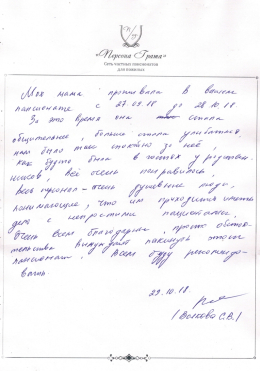 «Первая Грата»
Сеть частных пансионатов
для пожилых
Моя мама проживала в вашем
пансионате с 27.09.18 до 28.10.18
За это время она стала
общительнее, больше стала улыбаться,
нам было так спокойно за неё,
как будто была в гостях у родствен-
ников. Всё очень понравилось.
Весь персонал - очень душевные люди,
понимающие, что им приходится иметь
дело с непростыми пациентами.
Очень всем благодарны, просто обстоя-
тельства вынуждают покинуть этот
пансионат. Всем буду рекомендо-
вать.
29.10.18
/ Волкова С.В. /